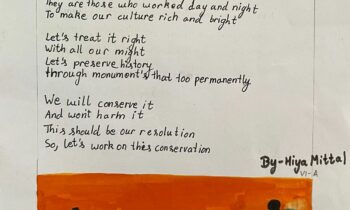 They are those who worked day and night
To make our culture rich and bright
Let's treat it right
With all our might
Let's preserve history
through monument's that too permanently
We will conserve it
And won't harm it
This should be our resolution
So, let's work on this conservation
By-Hiya Mittal
VI-A